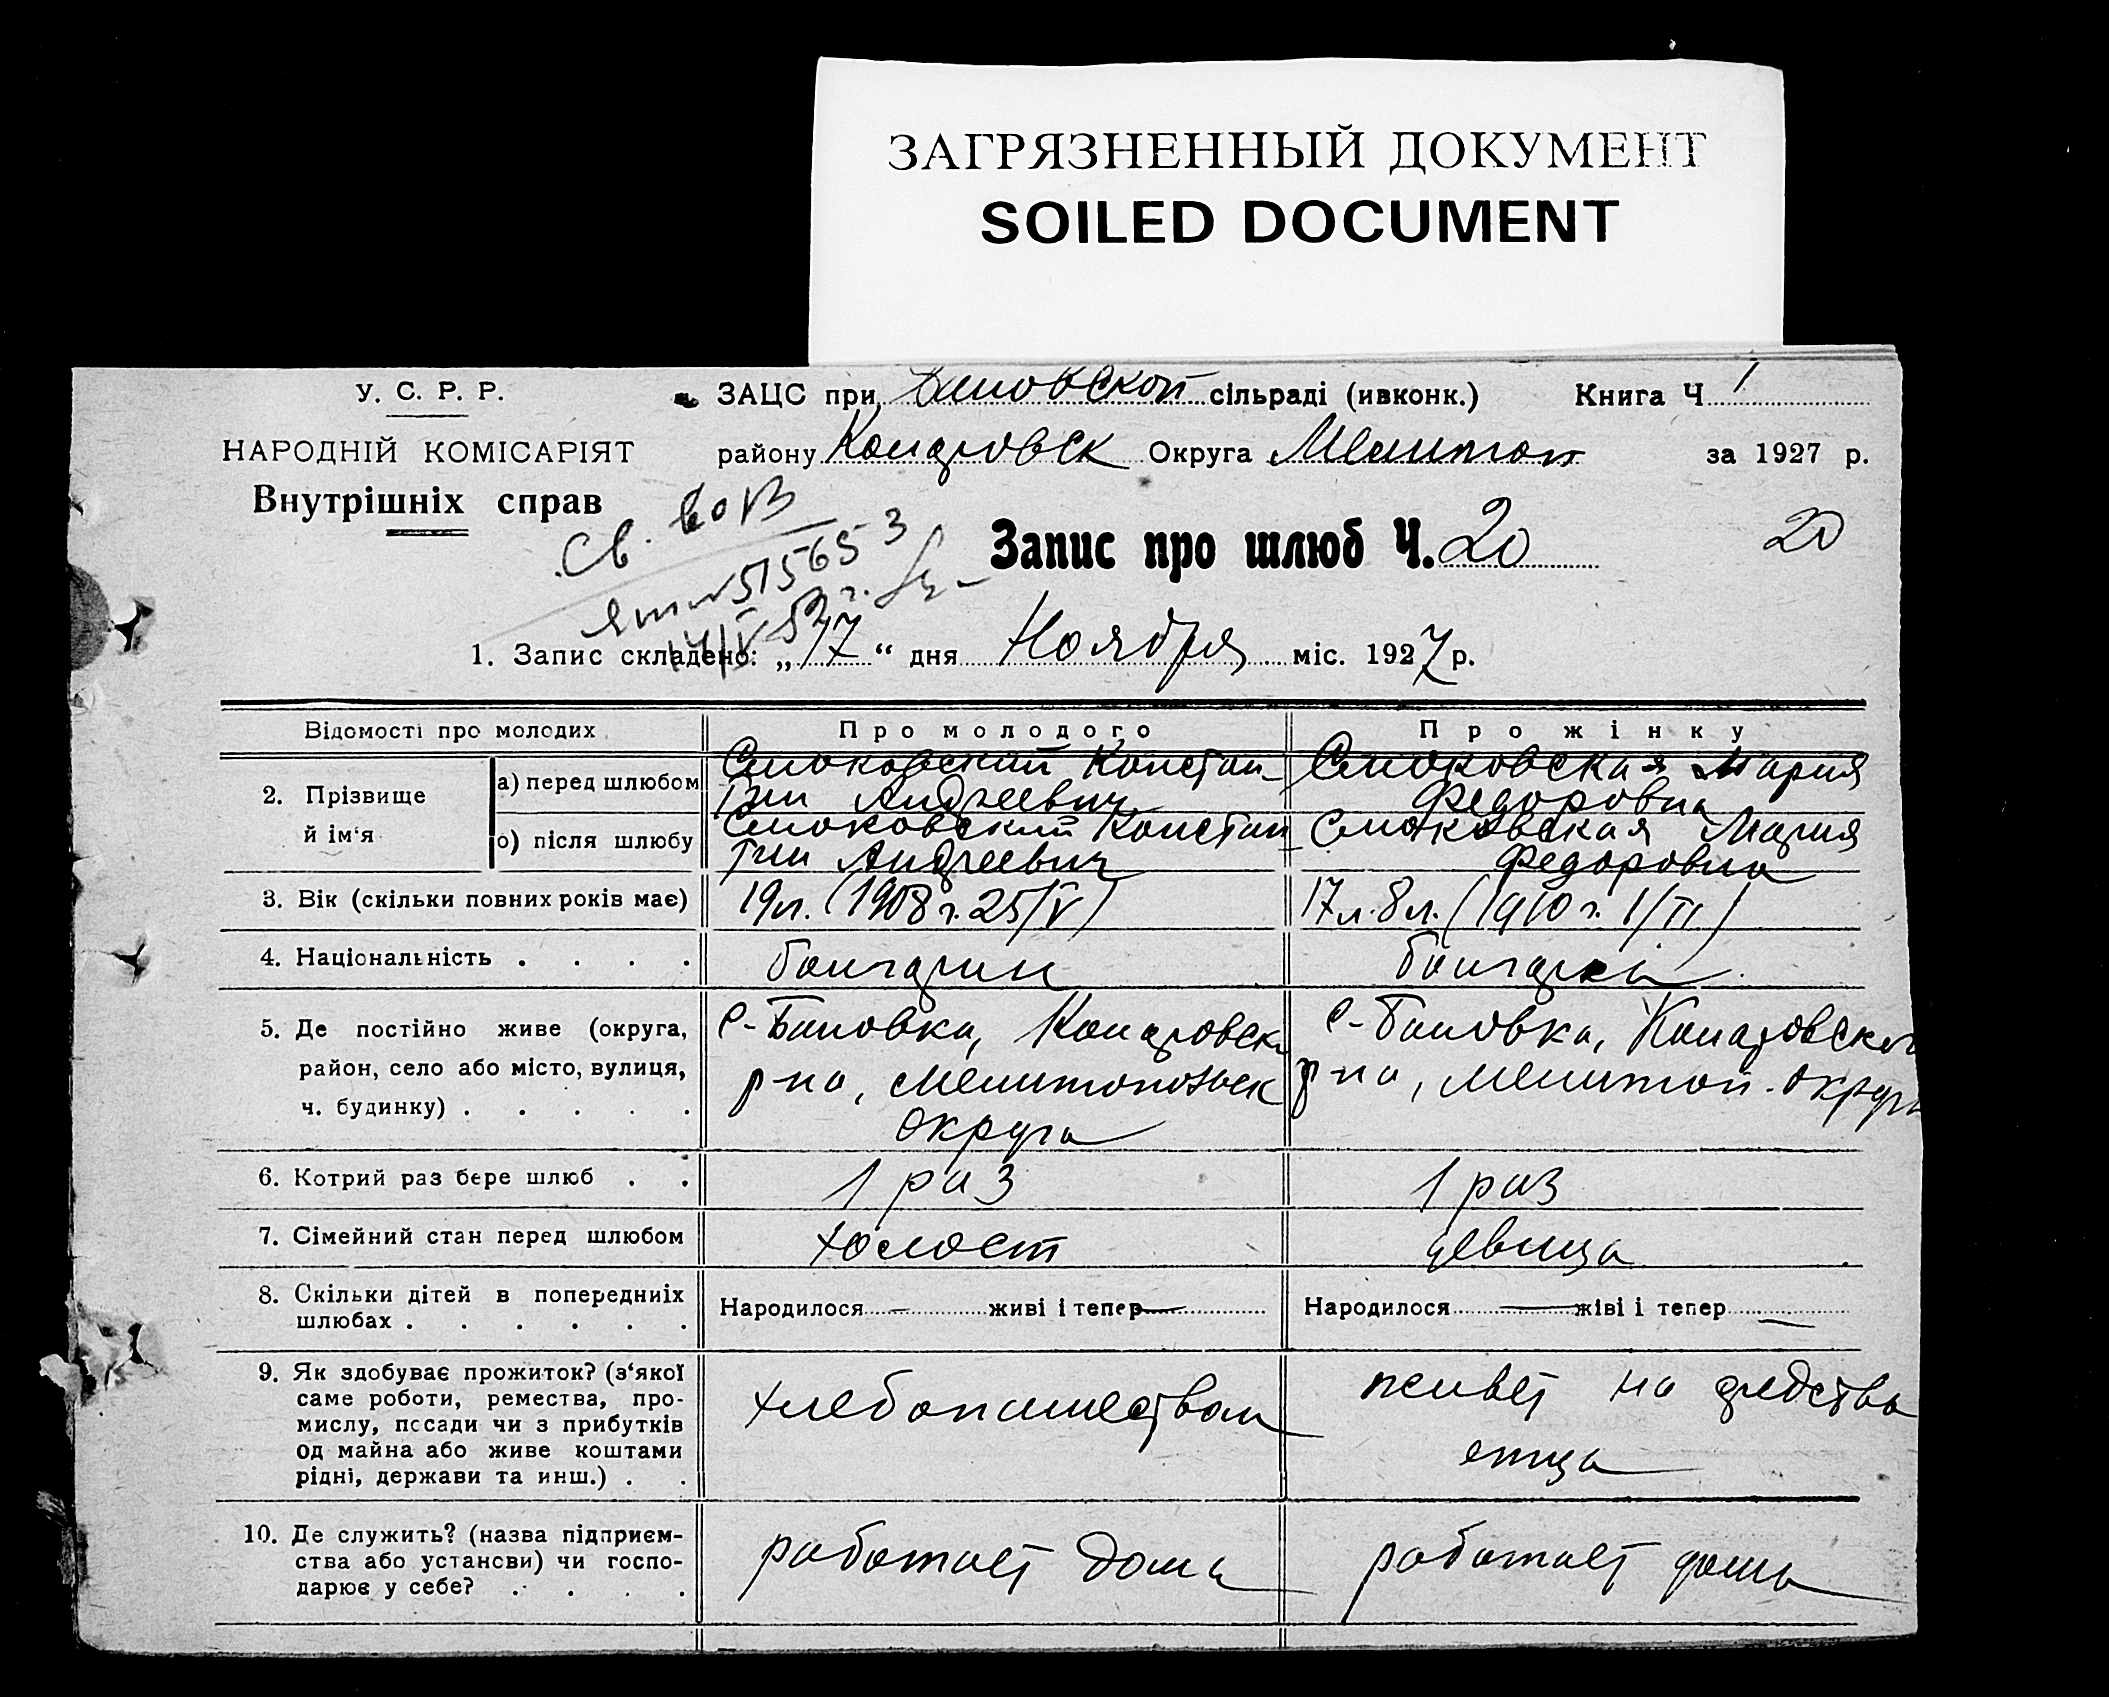 ЗАГРЯЗНЕННЫЙ ДОКУМЕНТ
SOILED DOCUMENT
У. С. Р. Р.
НАРОДНІЙ КОМІСАРІЯТ
Внутрішніх справ
ЗАЦС при сільраді (ивконк.) Книга Ч 1
району Округа Мелитоп за 1927 р.
Св.
51565 3
Запис про шлюб Ч. 20 20
1. Запис складено: „17“ дня Ноября міс. 1927 р.
Відомості про молодих Про молодого Про жінку
2. Прізвище й ім‘я
а) перед шлюбом
Константин Андреевич
Мария Федоровна
о) після шлюбу
Константин Андреевич
Мария Федоровна
3. Вік (скільки повних років має) 19 л. (1908 г. 25/V) 17 л. 8 м. (1910 г. 1/II)
4. Національність . . . . болгарин болгарка
5. Де постійно живе (округа,
район, село або місто, вулиця,
ч. будинку) . . . . .
с-Бановка,
р-на, Мелитопольск
округа
с-Бановка,
р-на, Мелитоп. округа
6. Котрий раз бере шлюб . . 1 раз 1 раз
7. Сімейний стан перед шлюбом холост девица
8. Скільки дітей в попередниіх
шлюбах . . . . . .
Народилося — живі і тепер — Народилося — жіві і тепер —
9. Як здобуває прожиток? (з‘якої
саме роботи, ремества, про-
мислу, посади чи з прибутків
од майна або живе коштами
рідні, держави та инш.) . .
хлебопашеством
живет на средства
отца
10. Де служить? (назва підприєм-
ства або установи) чи госпо-
дарює у себе? . . . .
работает дома
работает дома